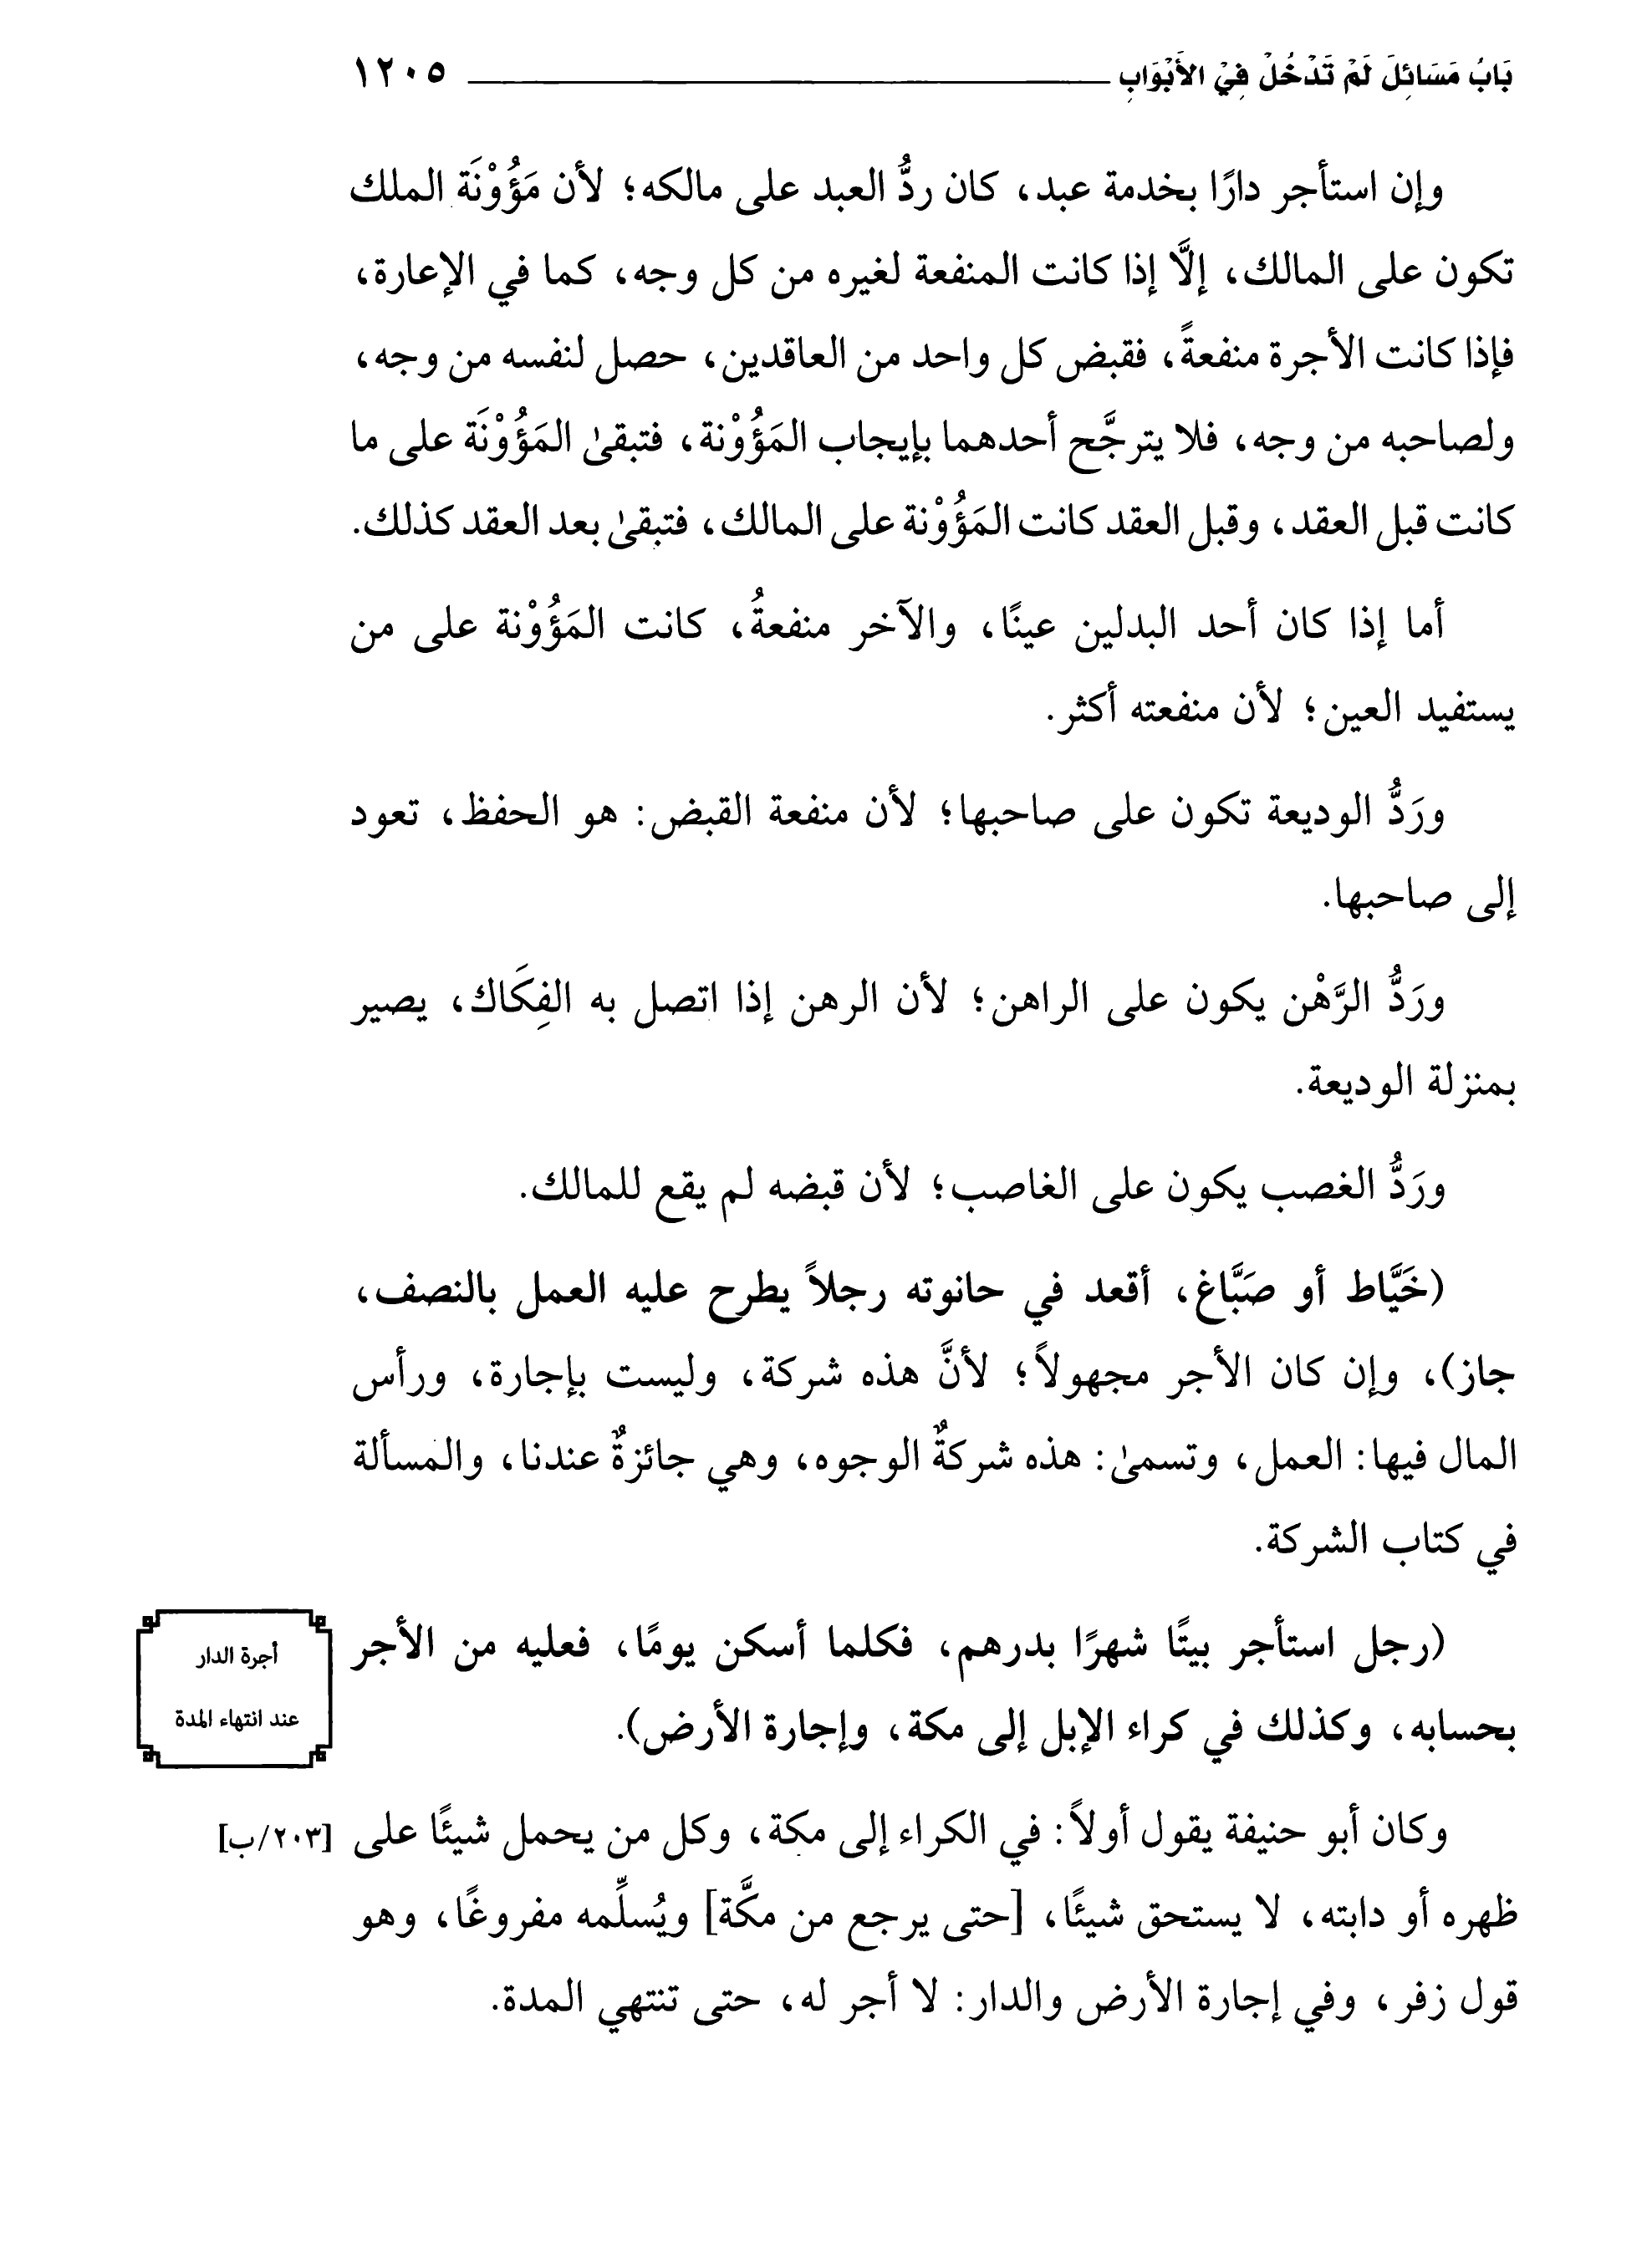 بَابُ مَسَائِلَ لَمْ تَدْخُلْ فِيْ الأَبْوَابِ ١٢٠٥
وإن استأجر دارًا بخدمة عبد، كان ردُّ العبد على مالكه؛ لأن مَؤُوْنَة الملك
تكون على المالك، إلَّا إذا كانت المنفعة لغيره من كل وجه، كما في الإعارة،
فإذا كانت الأجرة منفعةً، فقبض كل واحد من العاقدين، حصل لنفسه من وجه،
ولصاحبه من وجه، فلا يترجَّح أحدهما بإيجاب المَؤُوْنة، فتبقىٰ المَؤُوْنَة على ما
كانت قبل العقد، وقبل العقد كانت المَؤُوْنة على المالك، فتبقىٰ بعد العقد كذلك.
أما إذا كان أحد البدلين عينًا، والآخر منفعةُ، كانت المَؤُوْنة على من
يستفيد العين؛ لأن منفعته أكثر.
ورَدُّ الوديعة تكون على صاحبها؛ لأن منفعة القبض: هو الحفظ، تعود
إلى صاحبها.
ورَدُّ الرَّهْن يكون على الراهن؛ لأن الرهن إذا اتصل به الفِكَاك، يصير
بمنزلة الوديعة.
ورَدُّ الغصب يكون على الغاصب؛ لأن قبضه لم يقع للمالك.
(خَيَّاط أو صَبَّاغ، أقعد في حانوته رجلاً يطرح عليه العمل بالنصف،
جاز)، وإن كان الأجر مجهولاً؛ لأنَّ هذه شركة، وليست بإجارة، ورأس
المال فيها: العمل، وتسمىٰ: هذه شركةٌ الوجوه، وهي جائزةٌ عندنا، والمسألة
في كتاب الشركة.
(رجل استأجر بيتًا شهرًا بدرهم، فكلما أسكن يومًا، فعليه من الأجر
بحسابه، وكذلك في كراء الإبل إلى مكة، وإجارة الأرض).
أجرة الدار
عند انتهاء المدة
وكان أبو حنيفة يقول أولاً: في الكراء إلى مكة، وكل من يحمل شيئًا على [٢٠٣/ب]
ظهره أو دابته، لا يستحق شيئًا، [حتى يرجع من مكَّة] ويُسلِّمه مفروغًا، وهو
قول زفر، وفي إجارة الأرض والدار: لا أجر له، حتى تنتهي المدة.